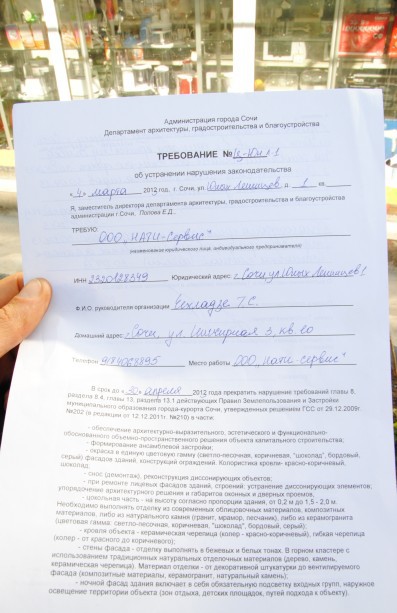 Администрация города Сочи
Департамент архитектуры, градостроительства и благоустройства
ТРЕБОВАНИЕ №
об устранении нарушения законодательства
«4» марта 2012 год, г. Сочи, ул. Юных Ленинцев д. 1 кв.
Я, заместитель директора департамента архитектуры, градостроительства и благоустройства
администрации г.Сочи, Попова Е.Д.
ТРЕБУЮ
ООО „НАТИ-Сервис"
(наименование юридического лица, индивидуального предпринимателя)
ИНН 2320128349 Юридический адрес: г. Сочи ул Юных Ленинцев 1
Ф.И.О. руководителя организации Т.С.
Домашний адрес: г. Сочи, ул. 3, кв. 20
Телефон Место работы ООО „Нати-сервис"
В срок до «30» апреля 2012 года прекратить нарушение требований главы 8,
раздела 8.4, главы 13, раздела 13.1 действующих Правил Землепользования и Застройки
муниципального образования города-курорта Сочи, утвержденных решением ГСС от 29.12.2009г.
№202 (в редакции от 12.12.2011г. №210) в части:
- обеспечение архитектурно-выразительного, эстетического и функционально-
обоснованного объемно-пространственного решения объекта капитального строительства;
- формирование ансамблевой застройки;
- окраска в единую цветовую гамму (светло-песочная, коричневая, "шоколад", бордовый,
серый) фасадов зданий, конструкций ограждений. Колористика кровли- красно-коричневый,
шоколад;
- снос (демонтаж), реконструкция диссонирующих объектов;
- при ремонте лицевых фасадов зданий, строений: устранение диссонирующих элементов;
упорядочение архитектурного решения и габаритов оконных и дверных проемов;
- цокольная часть - на высоту согласно пропорции здания, от 0,2 м до 1,5 - 2,0 м.
Необходимо выполнять отделку из современных облицовочных материалов, композитных
материалов, либо из натурального камня (гранит, мрамор, песчаник), либо из керамогранита
(цветовая гамма: светло-песочная, коричневая, "шоколад", бордовый, серый);
- кровля объекта - керамическая черепица (колер - красно-коричневый), гибкая черепица
(колер - от красного до коричневого);
- стены фасада - отделку выполнять в бежевых и белых тонах. В горном кластере с
использованием традиционных натуральных отделочных материалов (дерево, камень,
керамическая черепица). Материал отделки - от декоративной штукатурки до вентилируемого
фасада (композитные материалы, керамогранит, натуральный камень);
- ночной фасад здания включает в себя обязательную подсветку входных групп, наружное
освещение территории объекта (зон отдыха, детских площадок, путей подхода к объекту).